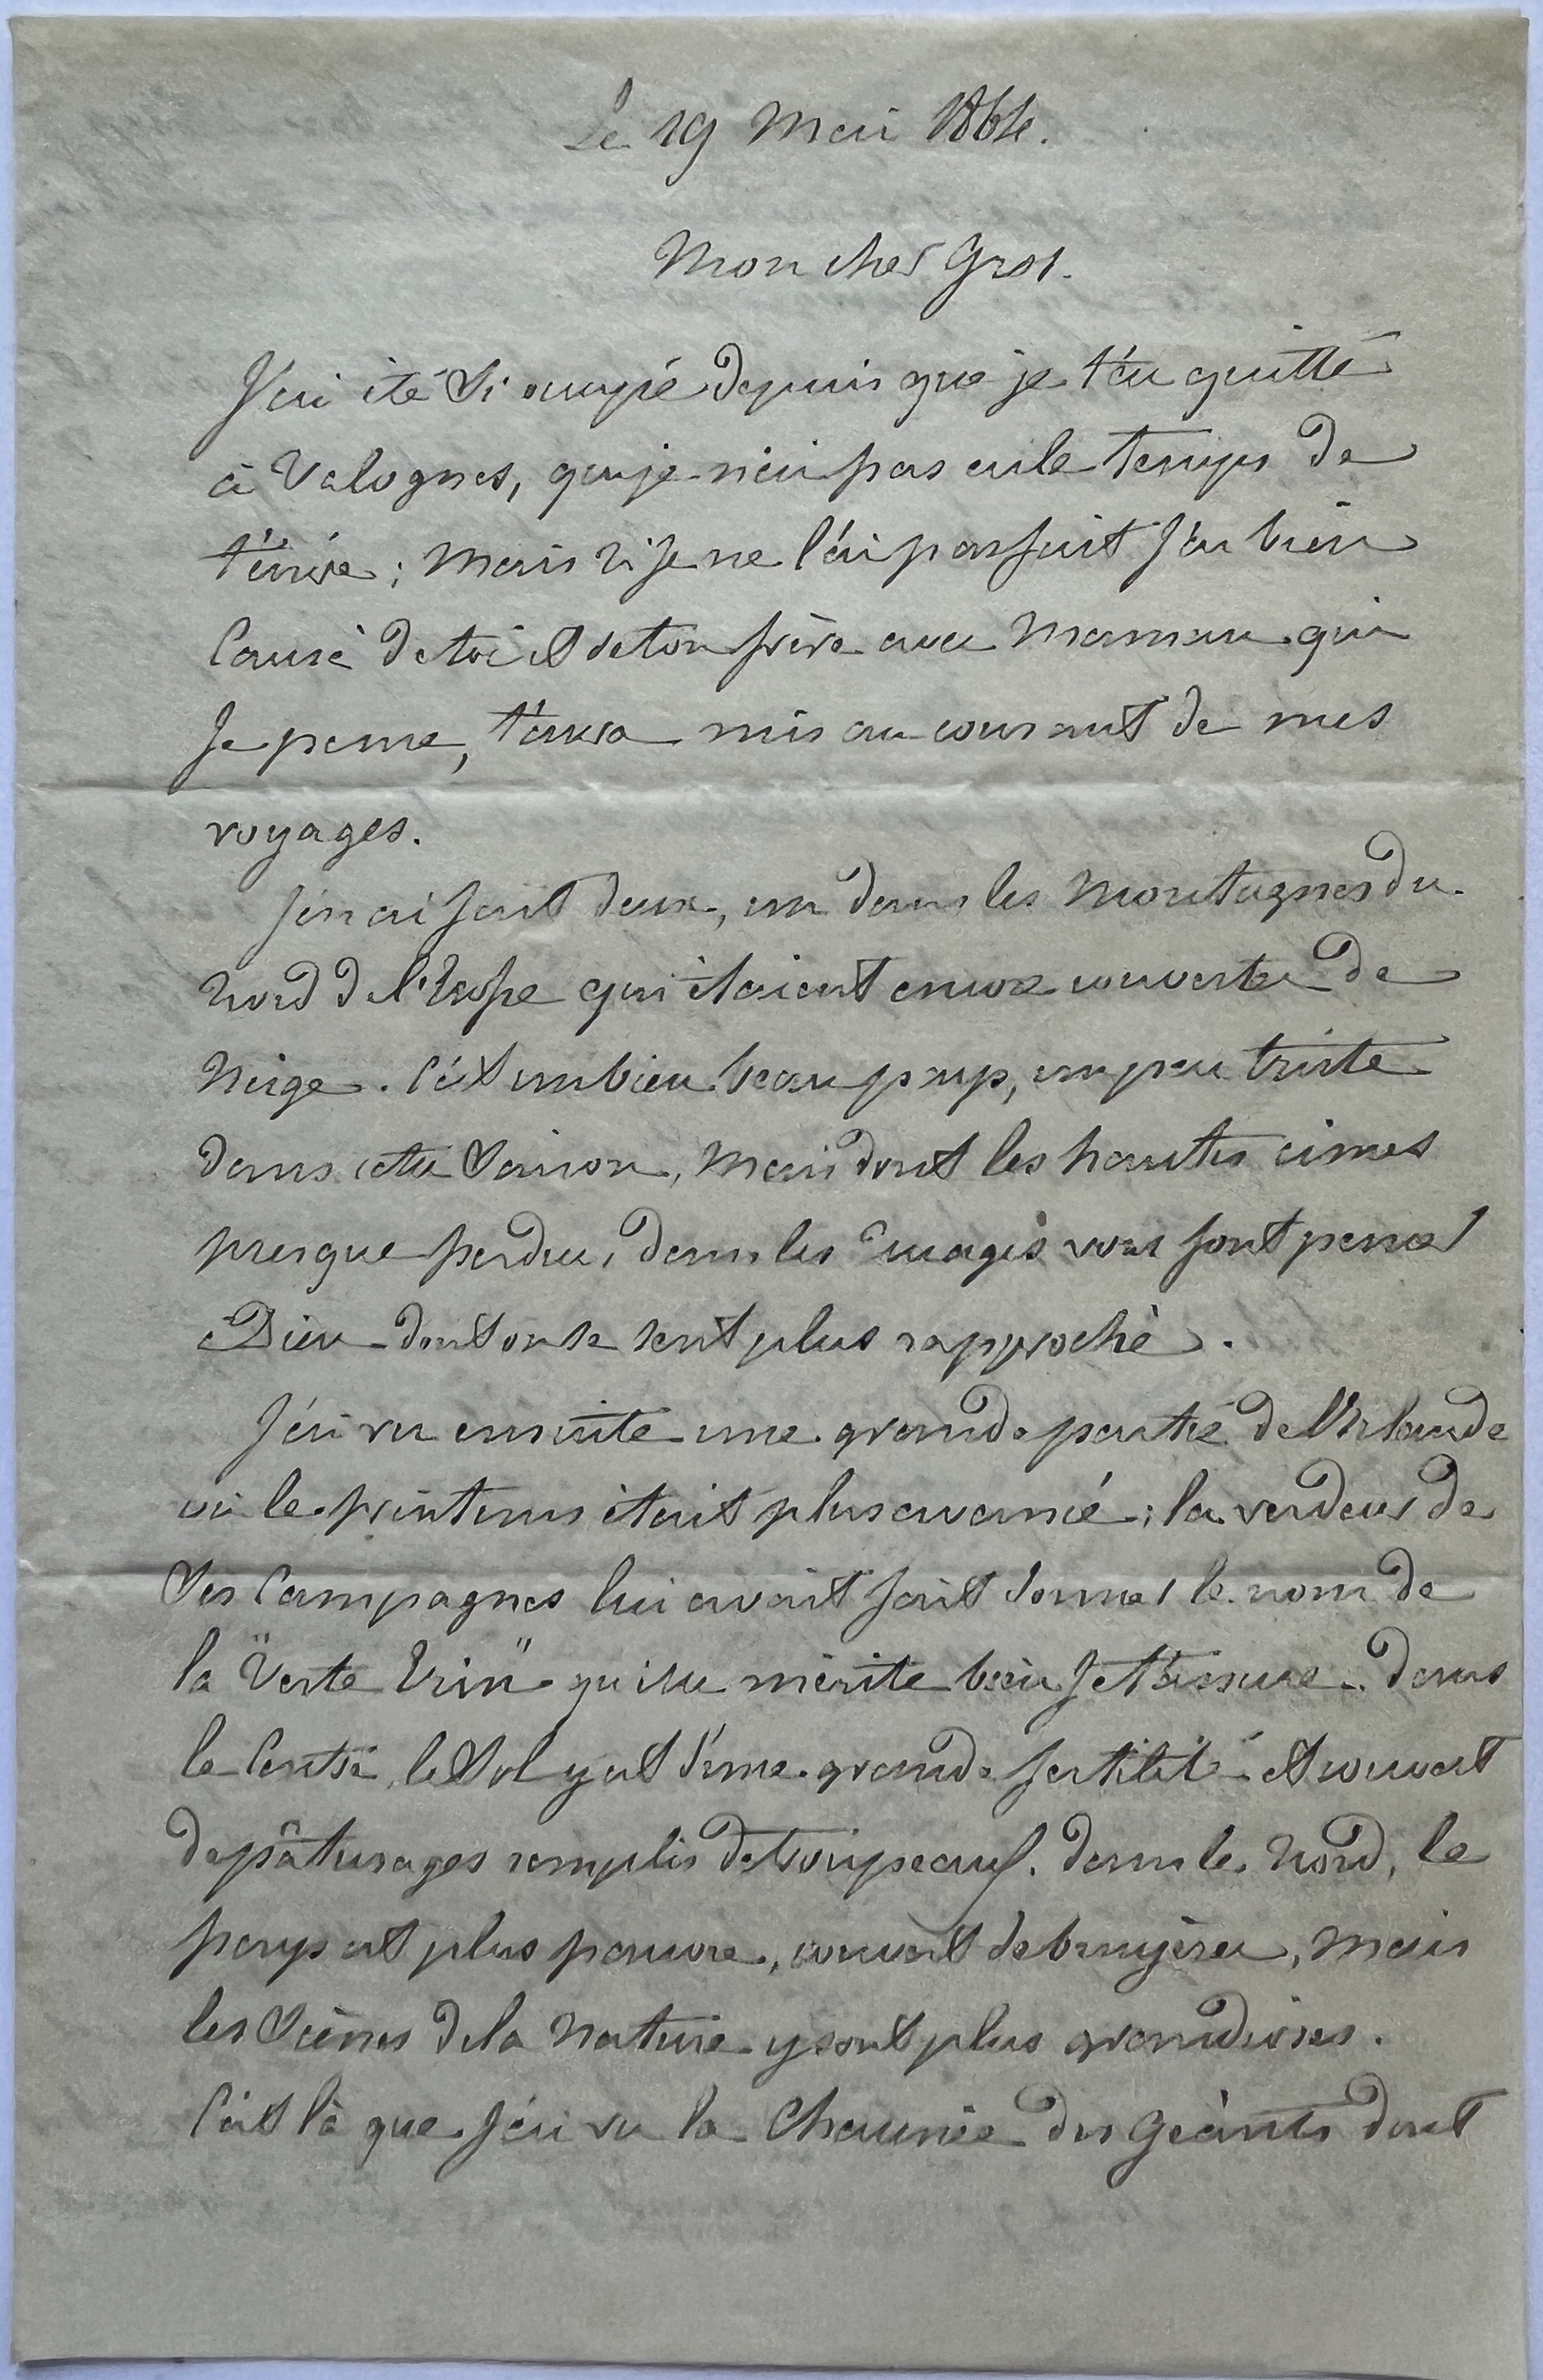 Le 19 Mai 1864.
Mon cher Gros.
J'ai été si occupé depuis que je t'ai quitté
à Valognes, que je n'ai pas eu le temps de
t'écrire ; mais si je ne l'ai pas fait j'ai bien
causé de toi et de ton frère avec Maman qui
je pense, t'aura mis au courant de mes
voyages.
J'en ai fait deux, un dans les Montagnes du
Nord de l'Ecosse qui étaient encore couvertes de
Neige. C'est un bien beau pays, un peu triste
dans cette saison, mais dont les hautes cimes
presque perdues dans les nuages vous font penser
à Dieu dont on se sent plus rapproché.
J'ai vu ensuite une grande partie de l'Irlande
où le printems était plus avancé ; la verdeur de
ses campagnes lui avait fait donner le nom de
la "Verte Erin" qu'elle mérite bien je t'assure. dans
le Centre, le sol y est d'une grande fertilité et couvert
de pâturages remplis de troupeaux. dans le Nord, le
pays est plus pauvre, couvert de bruyères, mais
les scènes de la Nature y sont plus grandioses.
C'est là que j'ai vu la Chaussée des Géants dont